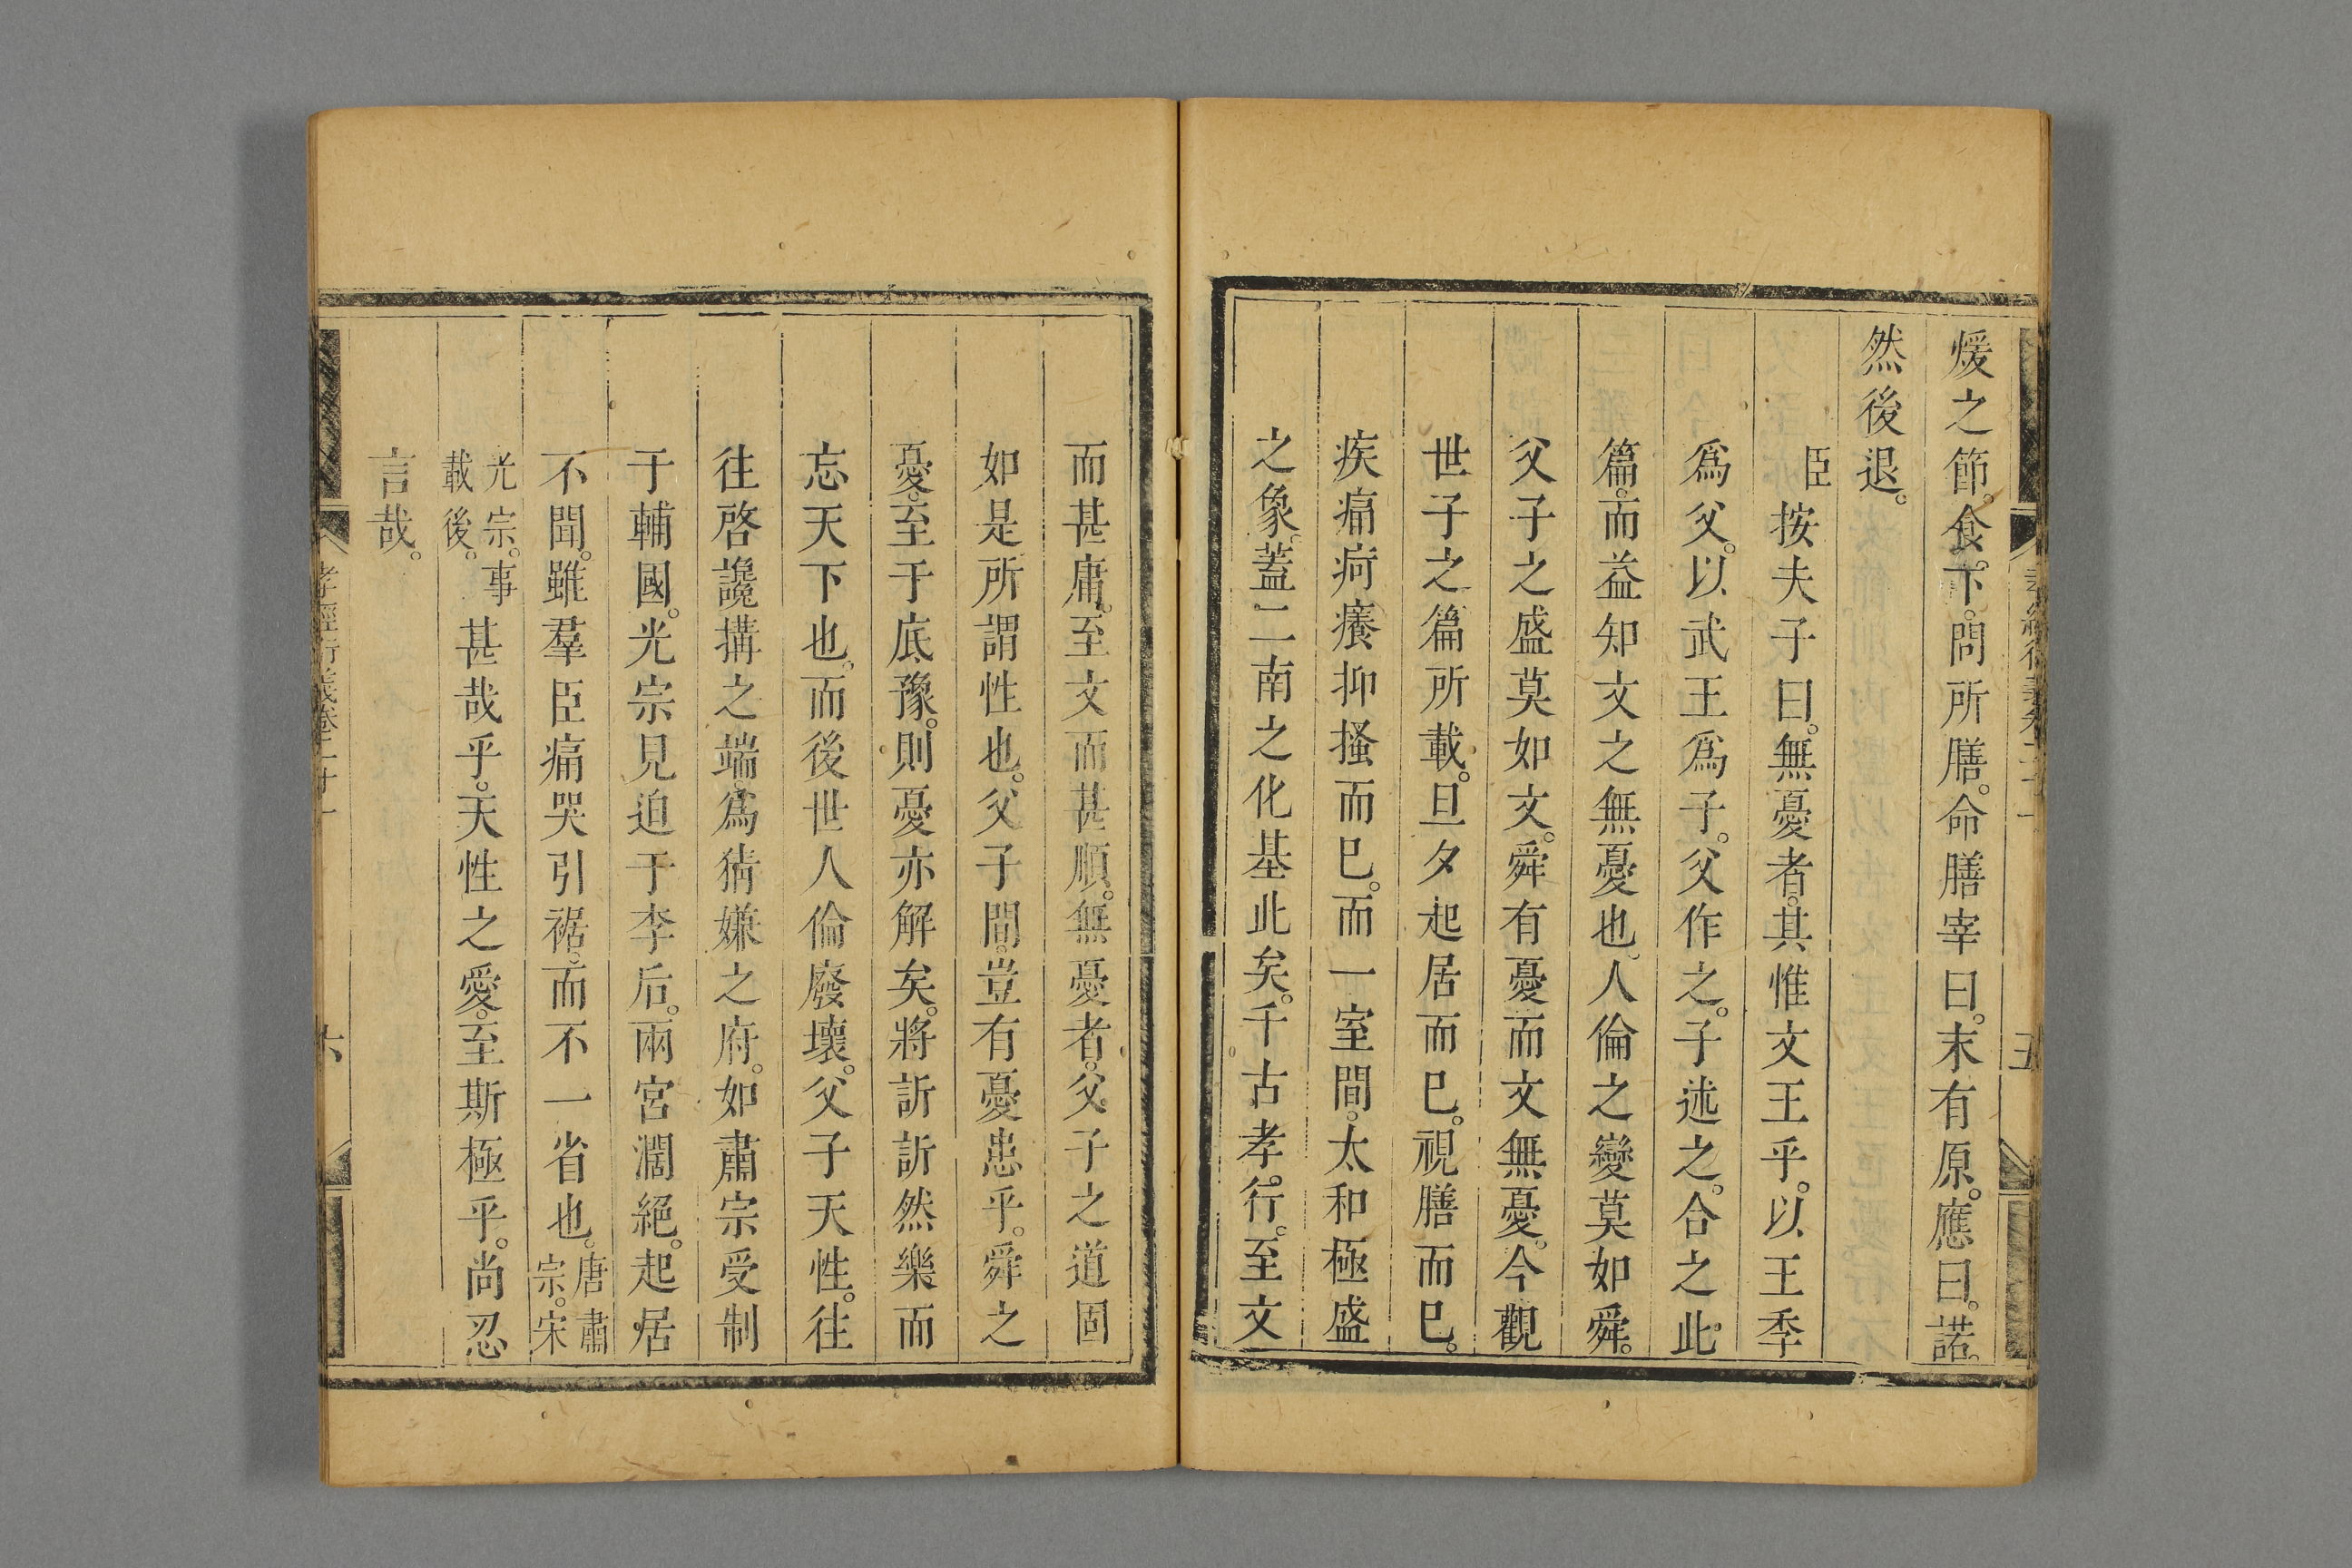 煖之節。食。下。問所膳。命膳宰曰。末有原。應曰。諾。
然後退。
臣按夫子曰。無憂者。其惟文王乎。以王季
爲父。以武王爲子。父作之。子述之。合之此
篇。而益知文之無憂也。人倫之變莫如舜。
父子之盛莫如文。舜有憂而文無憂。今觀
世子之篇所載。旦夕起居而已。視膳而已。
疾痛疴癢抑搔而已。而一室間。太和極盛
之象。蓋二南之化基此矣。千古孝。行。至文
而甚庸。至文而甚順。無憂者。父子之道固
如是所謂性也。父子間。豈有憂患乎。舜之
憂。至于底豫。則憂亦解矣。將訢訢然樂而
忘天下也。而後世人倫廢壞。父子天性。往
往啓讒搆之端。爲猜嫌之府。如肅宗受制
于輔國。光宗見迫于李后。兩宮濶絕。起居
不聞。雖羣臣痛哭引裾。而不一省也。唐肅宗。宋
光宗。事載後。甚哉乎。天性之愛。至斯極乎。尚忍
言哉。
孝經衍義卷二十一
六